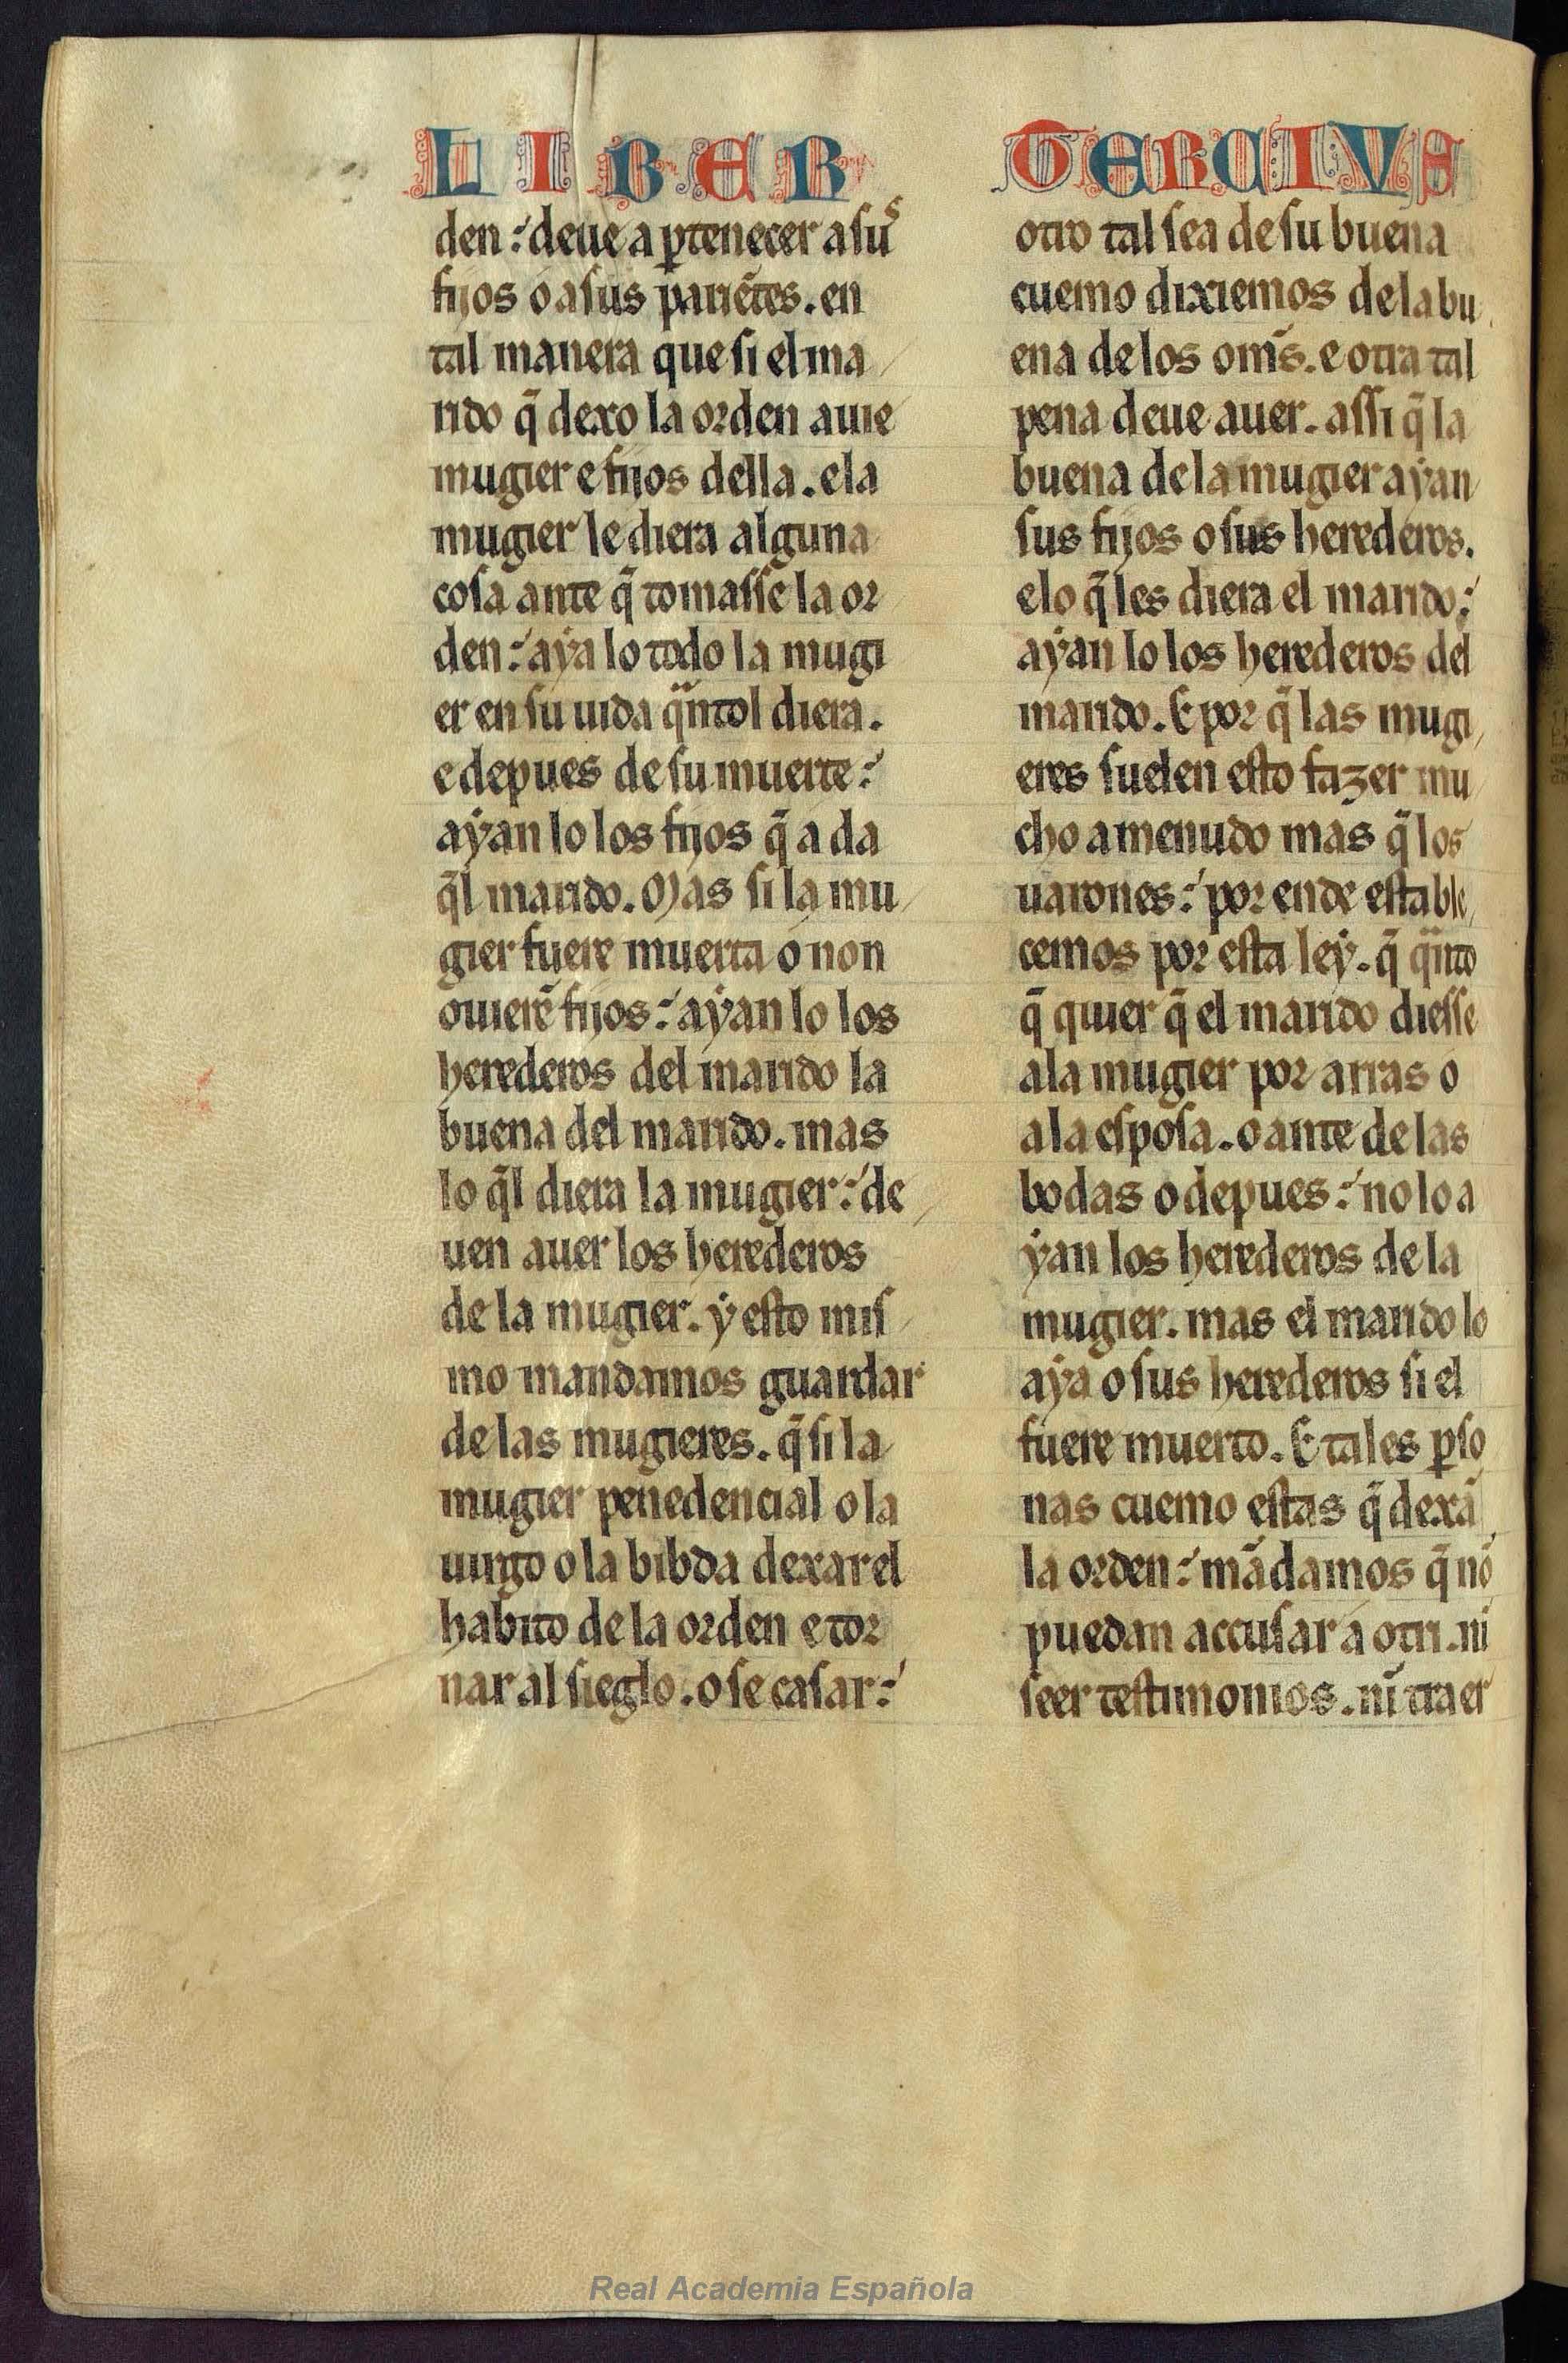 LIBER TERCIVS
den: deue a ꝑtenecer a suˢ
fijos o a sus pariẽtes. en
tal manera que si el ma
rido q̃ dexo la orden auie
mugier e fijos della. e la
mugier le diera alguna
cosa ante q̃ tomasse la or
den: aya lo todo la mugi
er en su uida qᷓntol diera.
e depues de su muerte:
ayan lo los fijos q̃ a da
q̃l marido. Mas si la mu
gier fuere muerta o non
ouierẽ fijos: ayan lo los
herederos del marido la
buena del marido. mas
lo q̃l diera la mugier: de
uen auer los herederos
de la mugier. y esto mis
mo mandamos guardar
de las mugieres. q̃ si la
mugier penedencial o la
uirgo o la bibda dexar el
habito de la orden e tor
nar al sieglo. o se casar:
otro tal sea de su buena
cuemo dixiemos de la bu
ena de los om̃s. e otra tal
pena deue auer. assi q̃ la
buena de la mugier ayan
sus fijos o sus herederos.
e lo q̃ les diera el marido:
ayan lo los herederos del
marido. E por q̃ las mugi
eres suelen esto fazer mu
cho a menudo mas q̃ los
uarones: por ende estable
cemos por esta ley. q̃ qᷓnto
q̃ quier q̃ el marido diesse
a la mugier por arras o
a la esposa. o ante de las
bodas o depues: no lo a
yan los herederos de la
mugier. mas el marido lo
aya o sus herederos si el
fuere muerto. E tales ꝑso
nas cuemo estas q̃ dexã
la orden: mãdamos q̃ nõ
puedan accusar a otri. ni
seer testimonios. nĩ traer
Real Academia Española